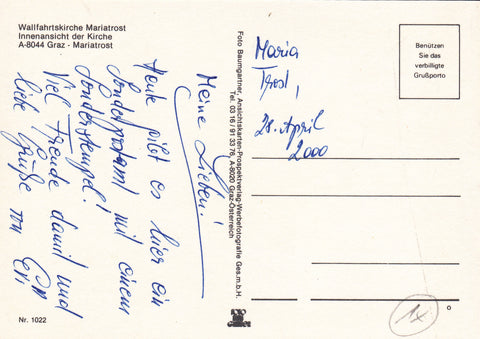 Wallfahrtskirche Mariatrost
Innenansicht der Kirche
A-8044 Graz - Mariatrost
Meine Lieben!
Heute gibt es hier ein
Sonderpostamt mit einem
Sonderstempel!
Viel Freude damit und
liebe Grüße von
Foto Baumgartner, Ansichtskarten-Prospektverlag-Werbefotografie Ges.m.b.H.
Tel. 03 16 / 91 33 76, A-8020 Graz-Österreich
Maria
Trost,
28. April
2000
Benützen
Sie das
verbilligte
Grußporto
Nr. 1022
FOTO
GRAZ